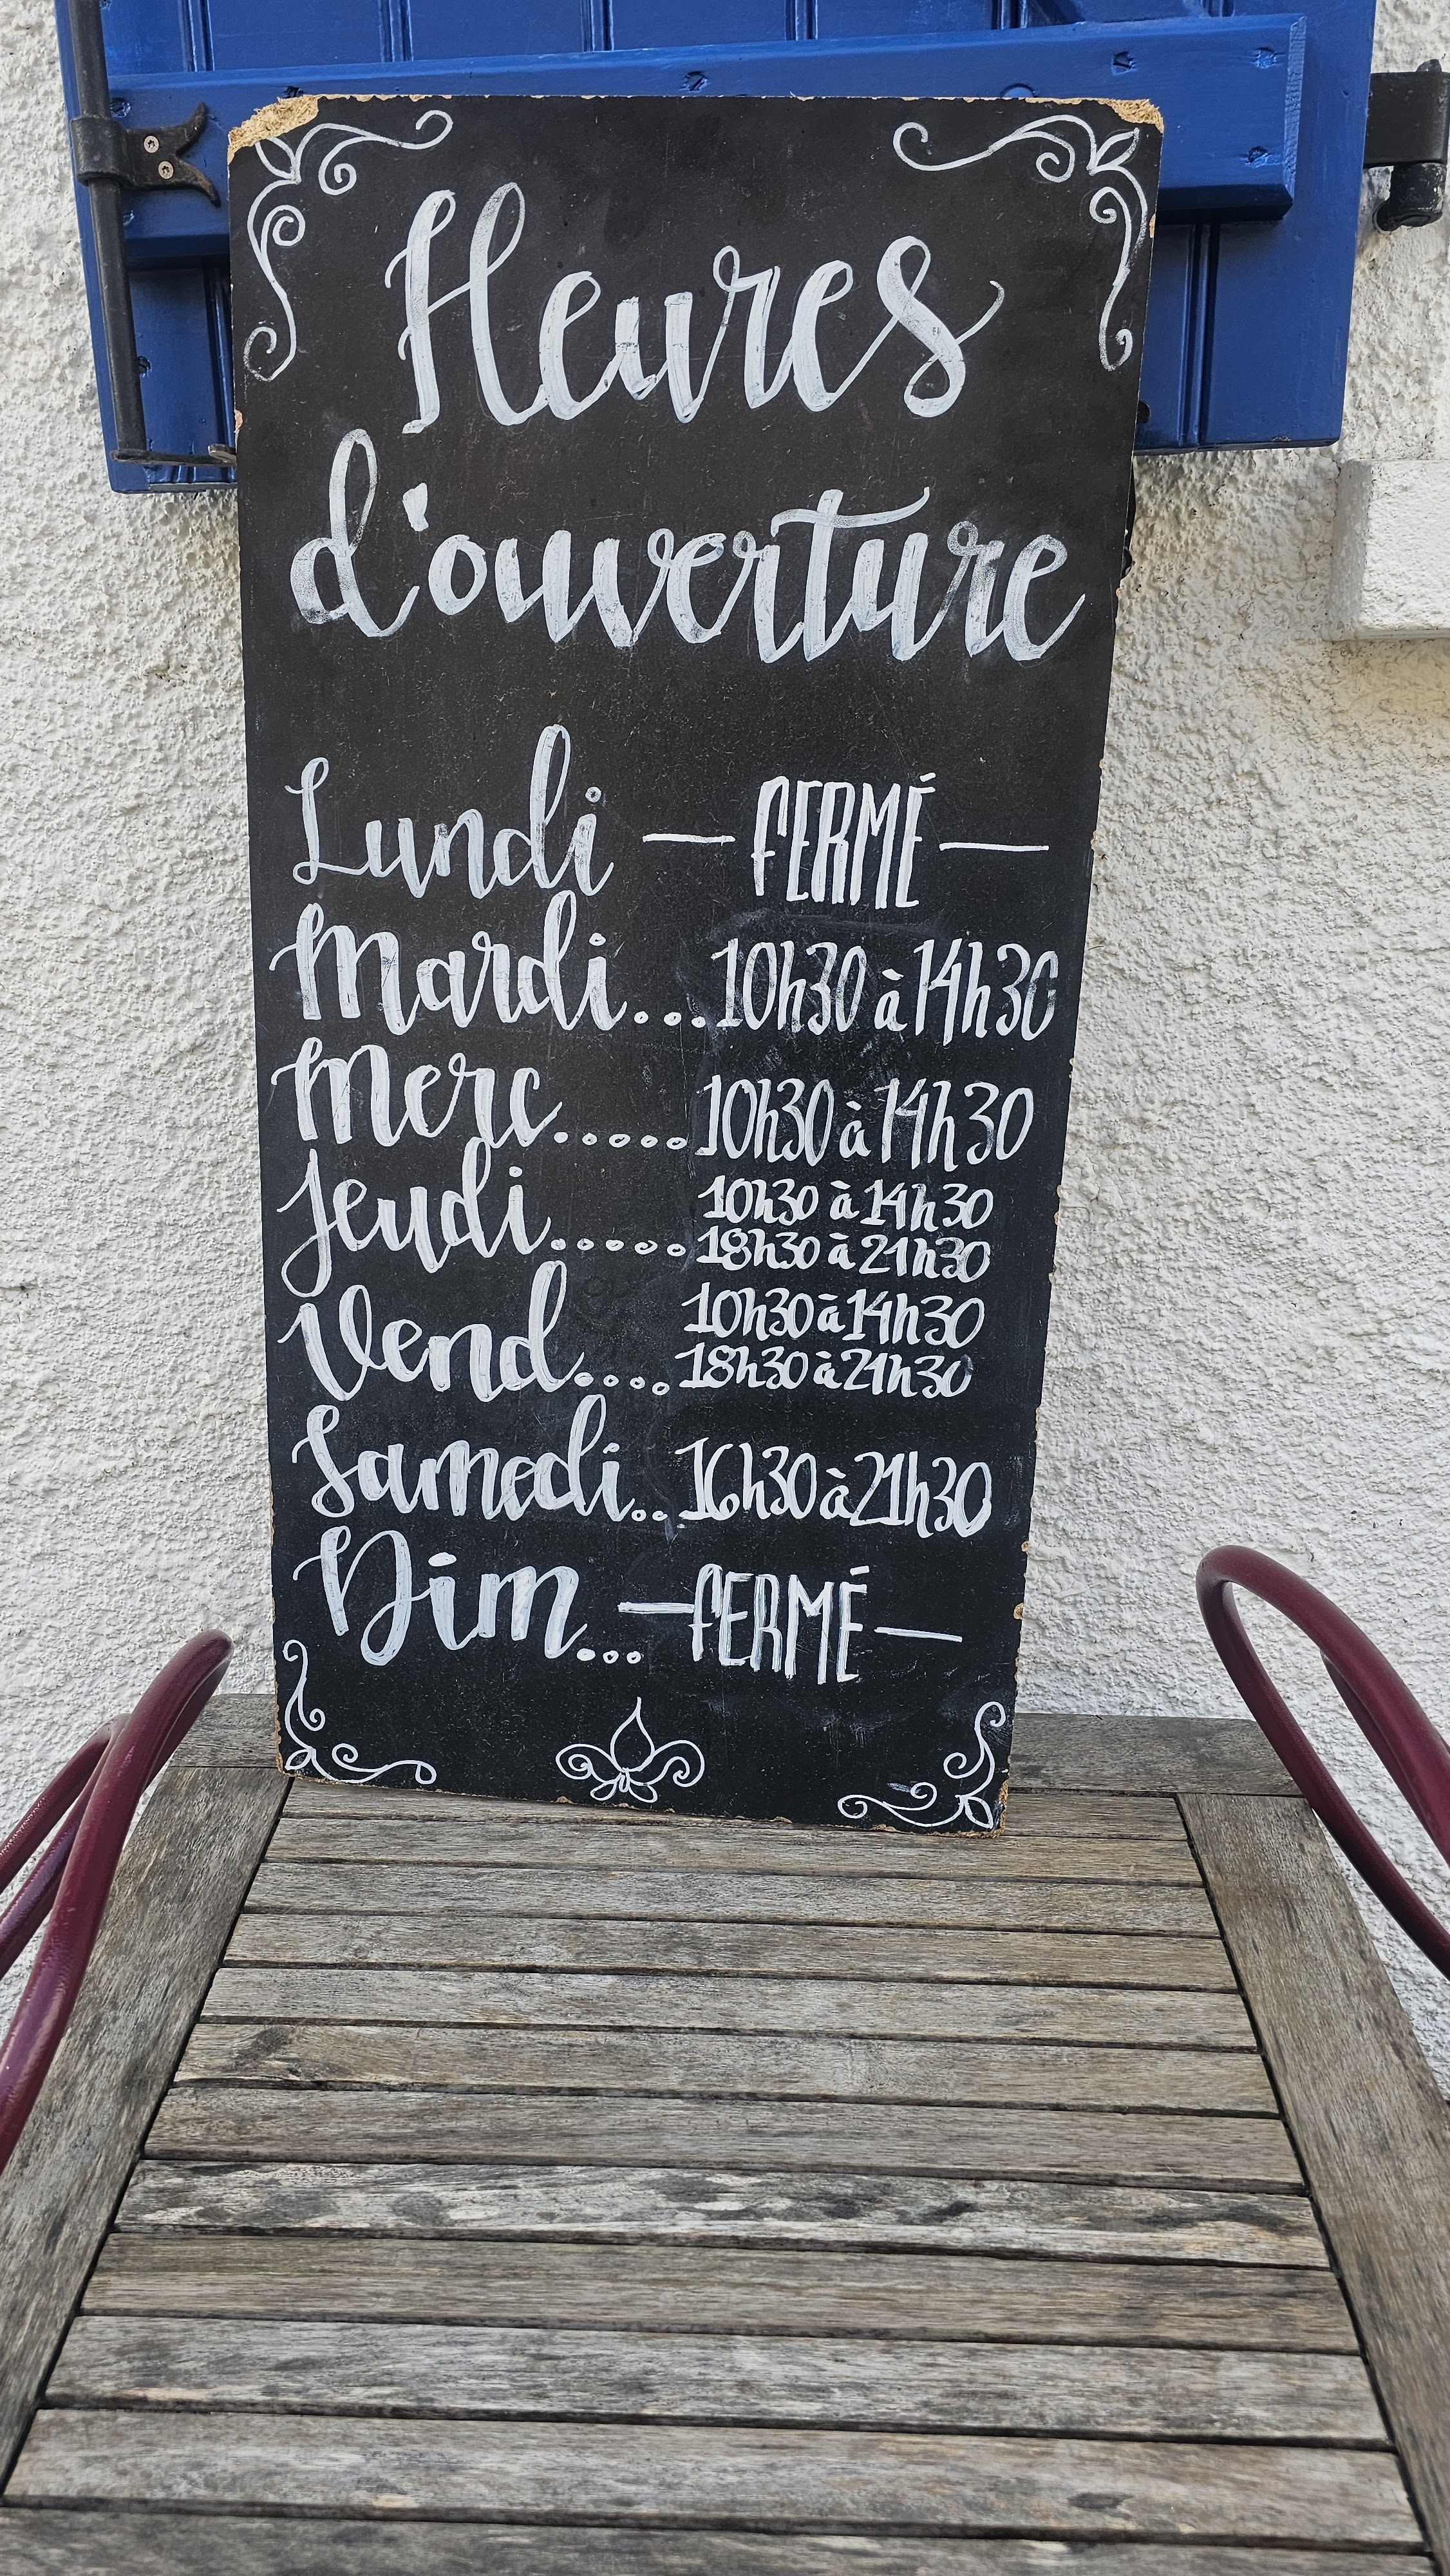 Heures
d'ouverture
Lundi — FERMÉ —
Mardi...10h30 à 14h30
Merc.....10h30 à 14h30
Jeudi.....10h30 à 14h30
18h30 à 21h30
Vend....10h30 à 14h30
18h30 à 21h30
Samedi..16h30 à 21h30
Dim...—FERMÉ—